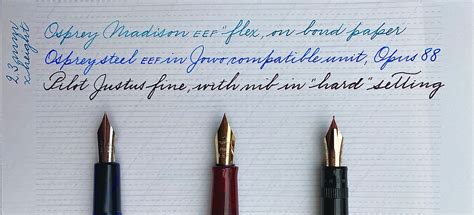 Osprey Madison EEF "flex, on bond paper
Osprey steel EEF in Jowo compatible unit, Opus 88
Pilot Justus fine, with nib in "hard" setting
2.3mm
x height